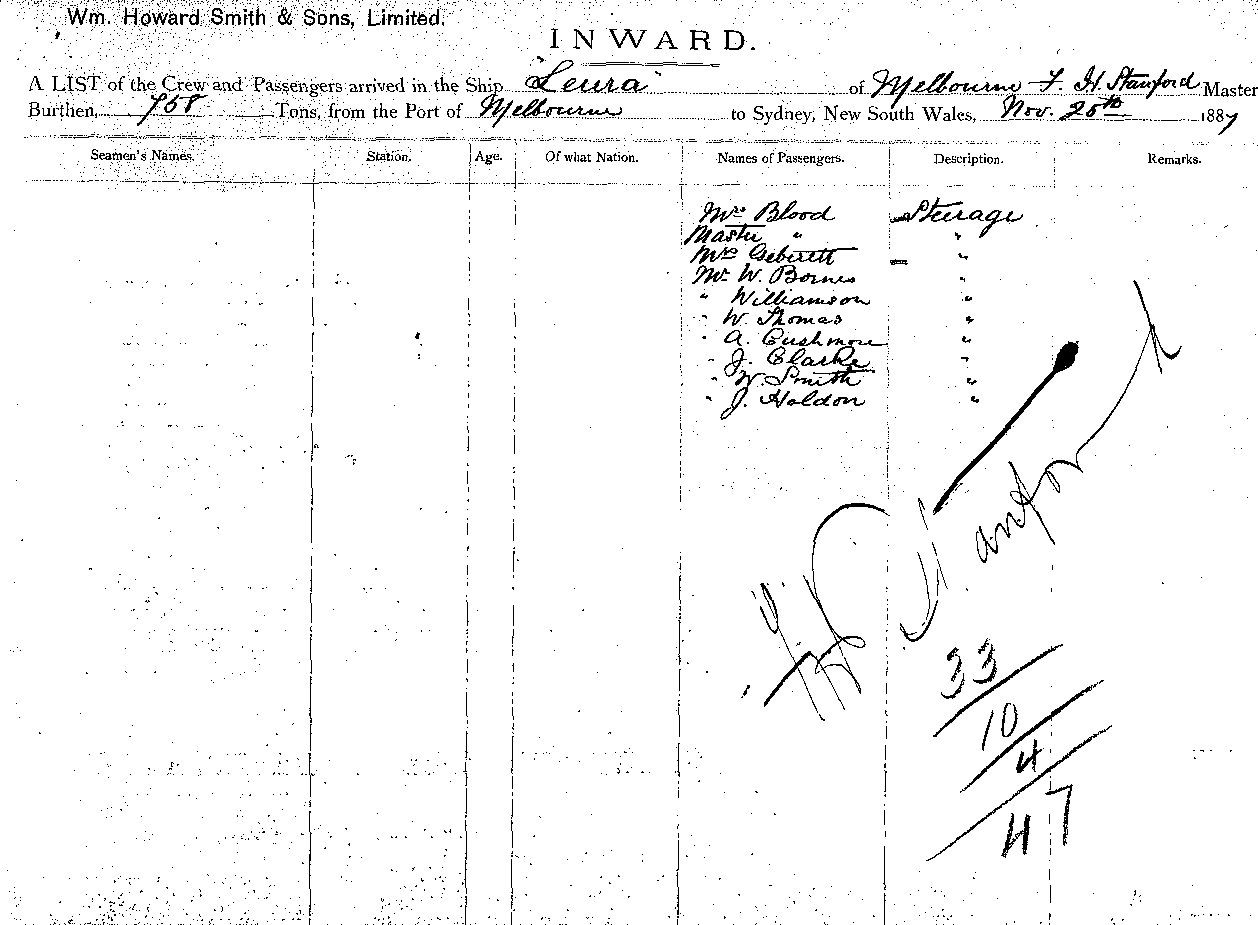 Wm. Howard Smith & Sons, Limited.
INWARD.
A LIST of the Crew and Passengers arrived in the Ship "Leura" of Melbourne F. H. Stanford Master
Burthen, 758 Tons, from the Port of Melbourne to Sydney, New South Wales, Nov. 20th 1887
Seamen's Names. Station. Age. Of what Nation. Names of Passengers. Description. Remarks.
Mrs Blood Steerage
Master " "
Mrs "
Mr W. "
" Williamson "
" W. Thomas "
" A. Cushmore "
" J. Clarke "
" W. Smith "
" J. Holdon "
33
10
4
47